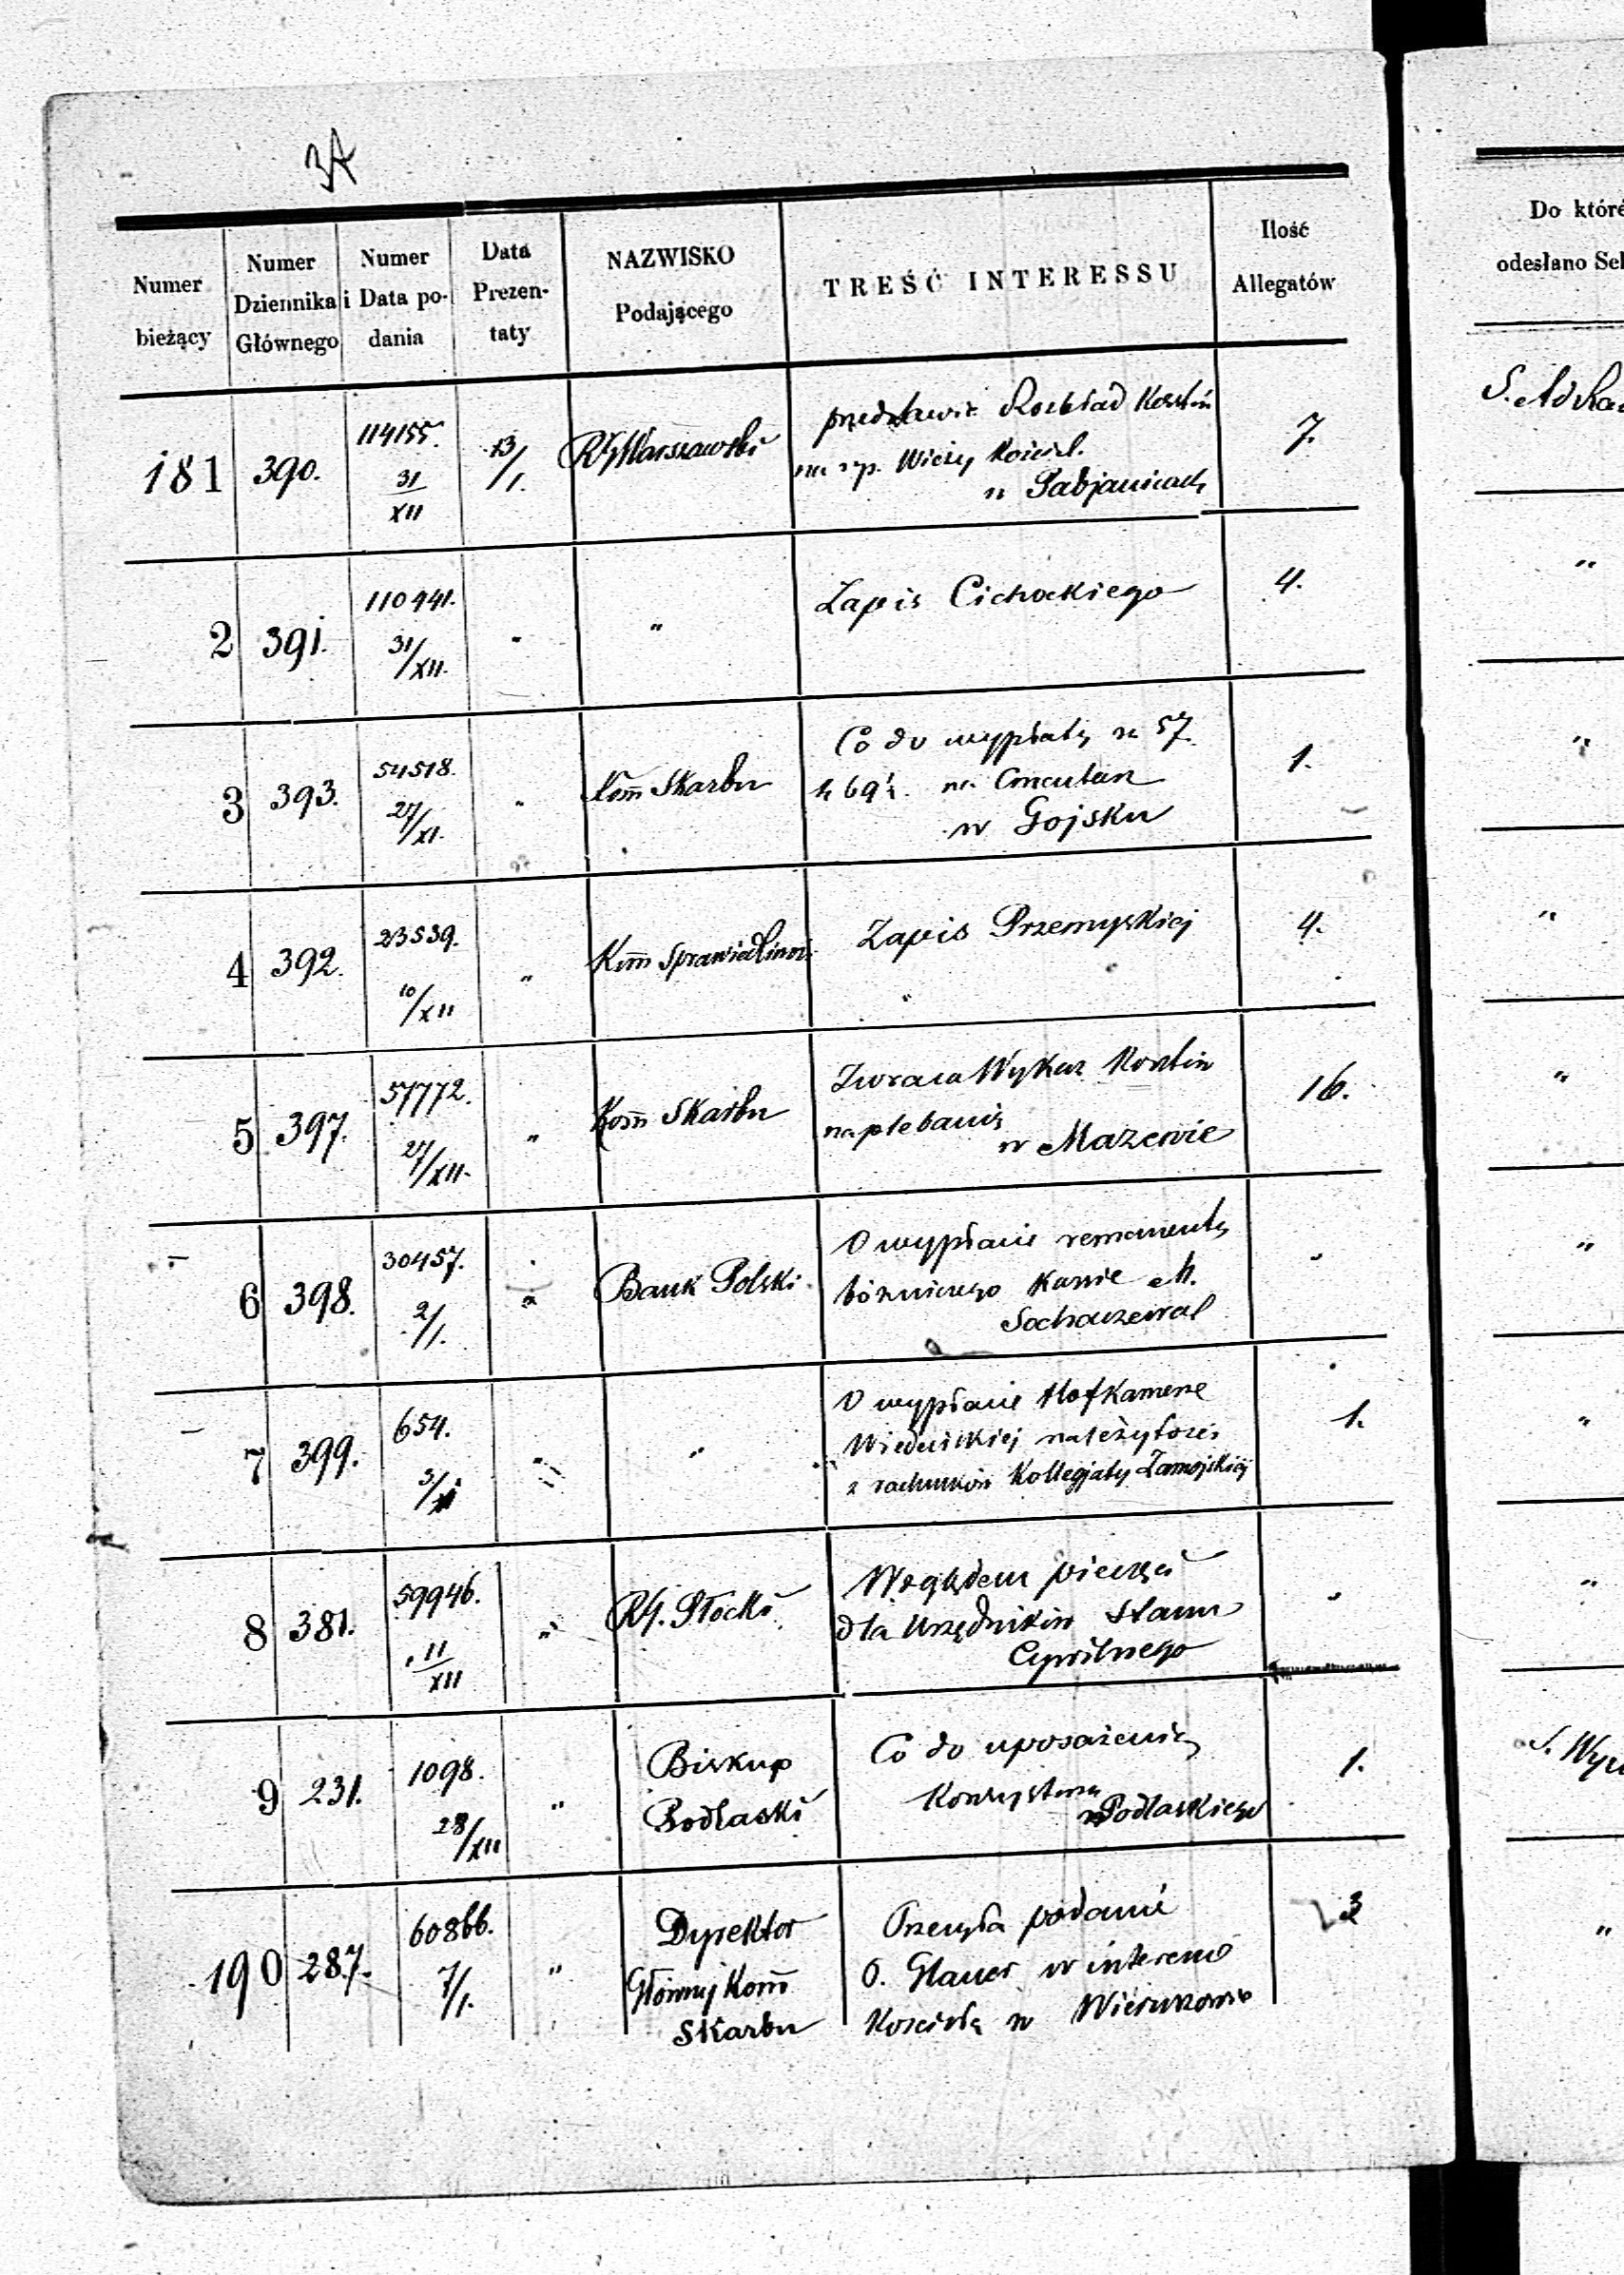 Numer bieżący
Numer Dziennika Głównego
Numer i Data podania
Data Prezentaty
NAZWISKO Podającego
TREŚĆ INTERESSU
Ilość Allegatów
Do któré
odesłano Sek
181 390. 114155. 31/XII 13/1. RG Warszawski
przedstawia Rozkład Kosztów
na rep. Wieży Kościel.
w Pabjanicach
7.
2 391. 110941. 31/XII. " " Zapis Cichockiego 4.
3 393. 54518. 27/XI. " Kom̄ Skarbu
Co do wypłaty
na
w Gojsku
1.
4 392. 23539. 10/XII " Kom̄ Sprawiedliwoś. Zapis Przemyskiej 4.
5 397. 57772. 27/XII. " Kom̄ Skarbu
Zwraca Wykaz Kosztów
na plebanię
w Mazewie
16.
6 398. 30457. 2/1. " Bank Polski
O wypłacie remanentu
bóżniczego Kassie M.
Sochaczewa
"
7 399. 654. " "
O wypłacie Hofkamerze
Wiedeńskiej należytości
z rachunków Kollegjaty Zamojskiej
1.
8 381. 59946. 11/XII " RG. Płocki
Względem pieczęci
dla Urzędników Stanu
Cywilnego
"
9 231. 1098. 28/XII "
Biskup
Podlaski
Co do uposażenia
Konsystorza
Podlaskiego
1.
S. Wyz
190 287. 60866. 7/1. "
Dyrektor
Głównej Kom̄
Skarbu
Przesyła podanie
O. Glauer w interesie
Kościoła w Wieruszowie
3
"